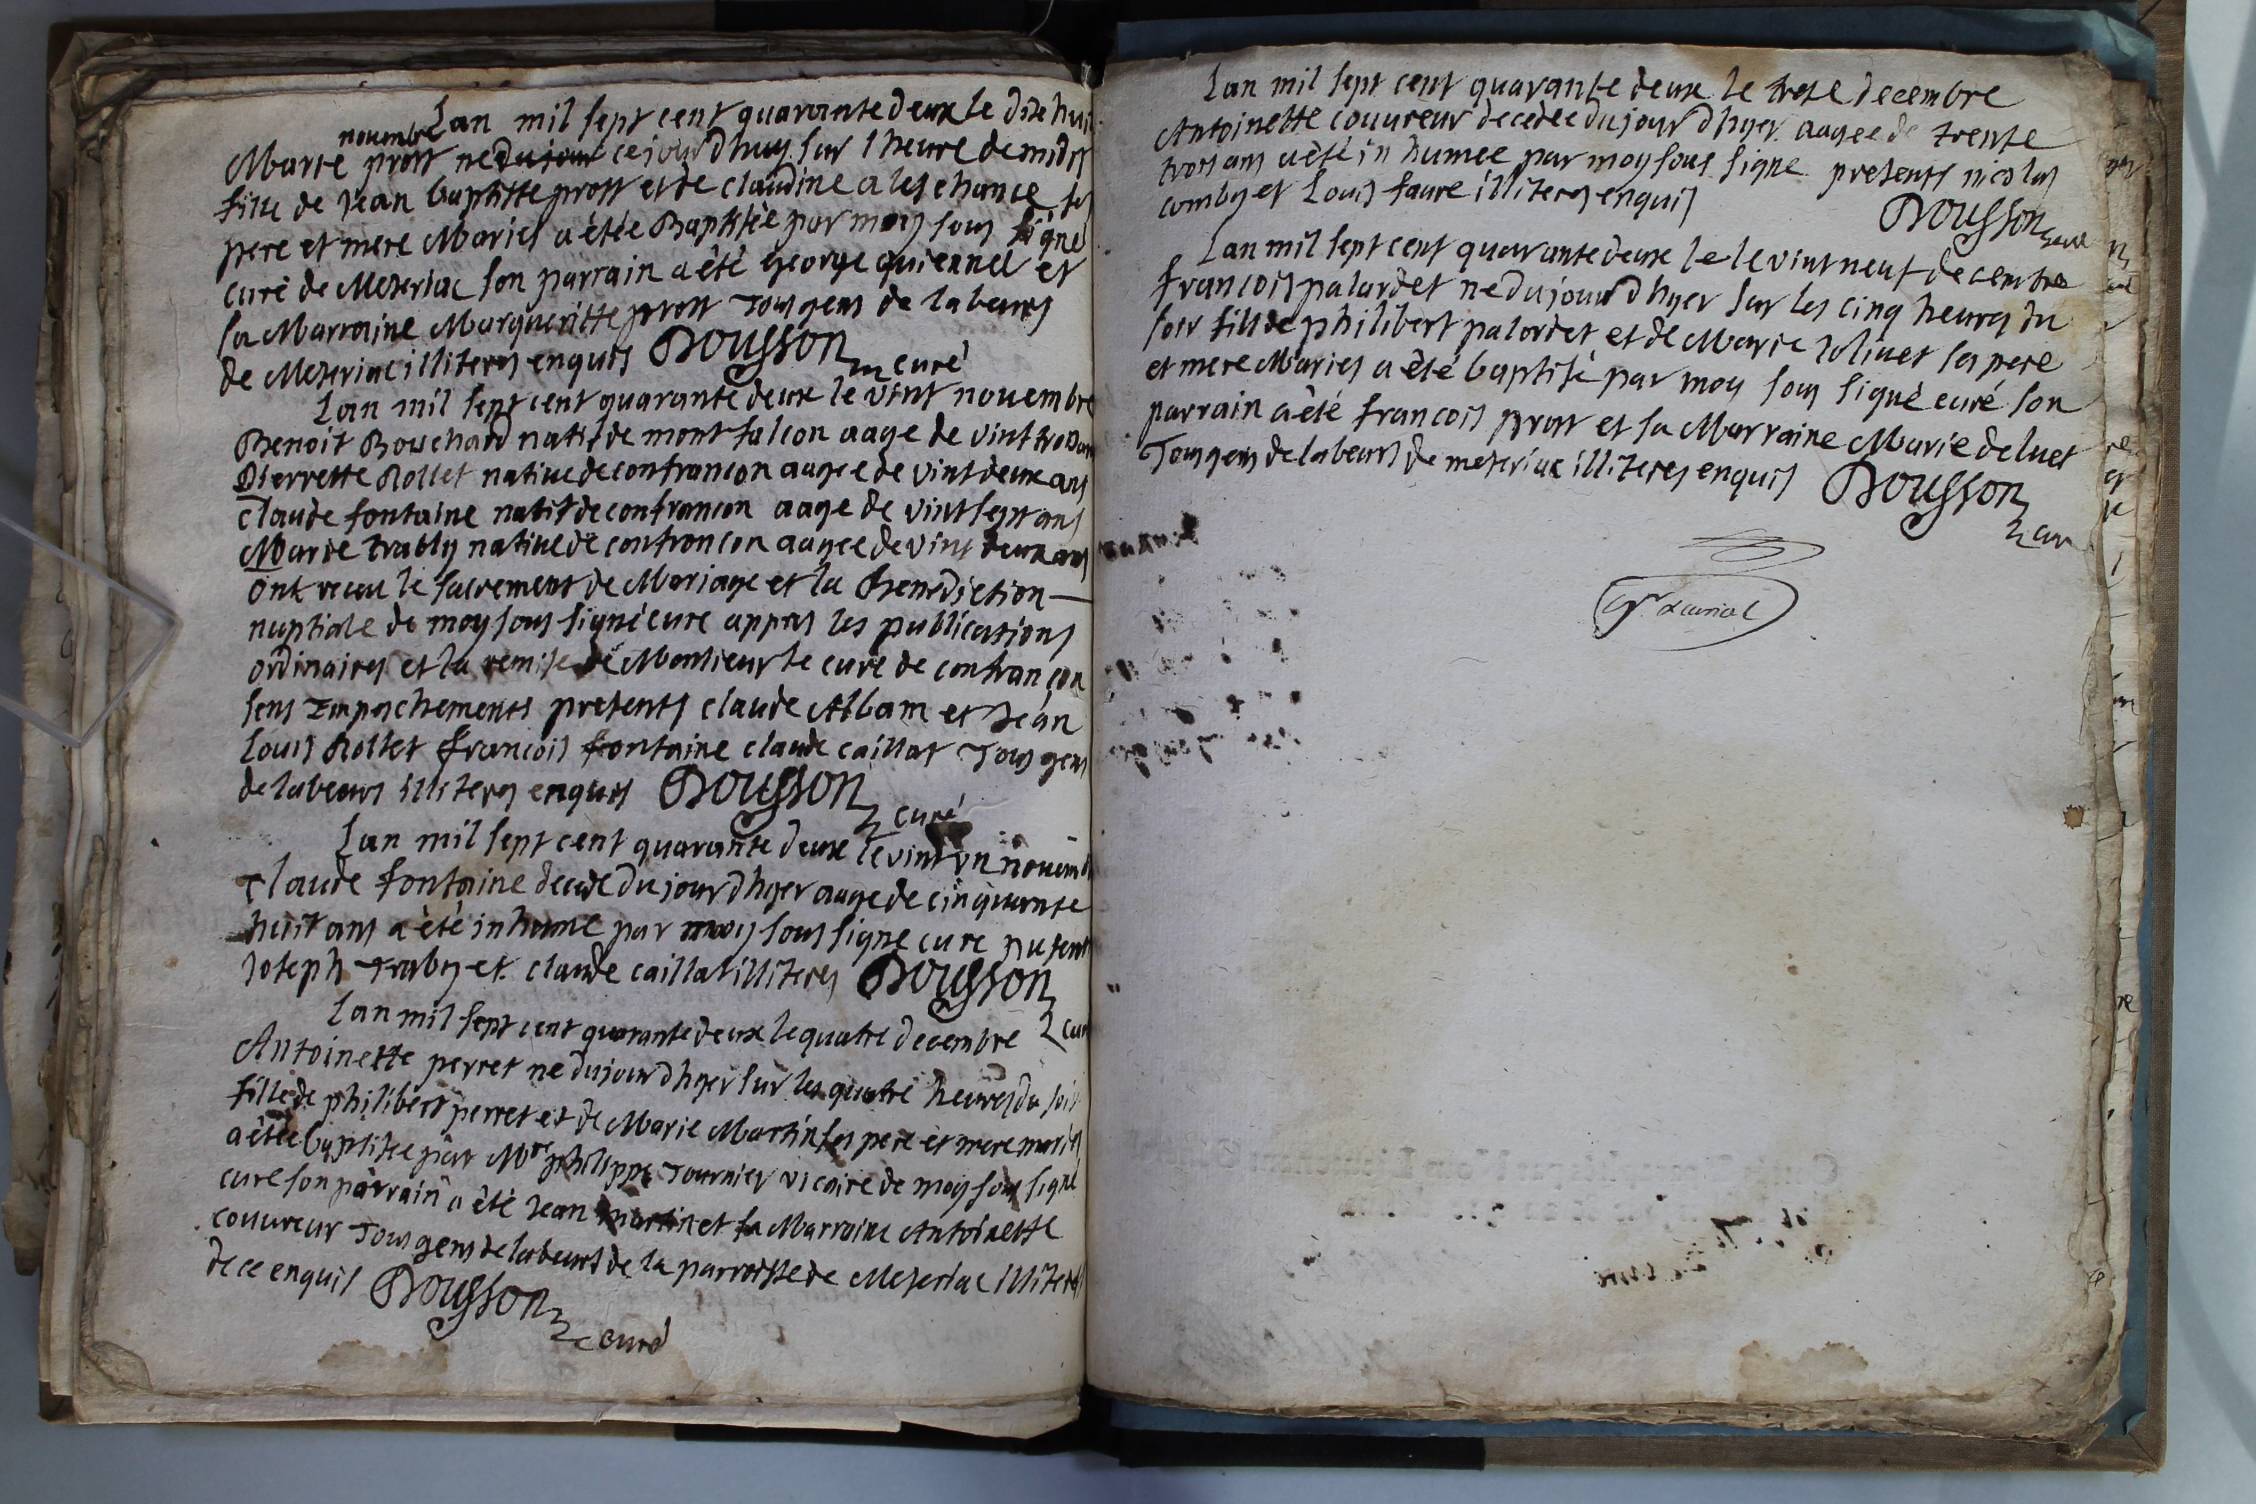 Lan mil sept cent quarante deux le dixe huit
nouembre
Marie prost ne du jour ce jourdhuy sur lheure de midy
fille de Jean baptiste prost et de claudine a lechance ses
pere et mere Maries a étée Baptisée par moy sous signé
curé de Mezeriac son parrain a été george quiennel et
sa Marraine Margueritte prost Tous gens de labeurs
de Mezeriac illiteres enquis Dousson curé
Lan mil sept cent quarante deux le vint nouembre
Benoit Bouchard natif de montfalcon aage de vint trois ans
Pierrette Rollet natiue de confrancon aagee de vint deux ans
Claude fontaine natif de confrancon aage de vint sept ans
Marie trably natiue de confroncon aagee de vint deux ans
ont receu le sacrement de Mariage et la Benediction
nuptiale de moy sous signé cure appres les publications
ordinaires et la remise de Monsieur le curé de confrançon
sens Empeschements presents claude Albam et Jean
Louis Rollet francois fontaine claude caillat Tous gens
de labeurs illiteres enquis Dousson curé
Lan mil sept cent quarante deux le vint vn nouemb
Claude fontaine decede du jour dhyer aage de cinquante
huit ans a été inhume par moy sous signe cure presents
Joseph Traby et claude caillat illiteres Dousson
cur
Lan mil sept cent quarante deux le quatre decembre
Antoinette perret ne du jour dhyer sur les quatre heures du soir
fille de philibert perret et de Marie Martin ses pere et mere maries
a étée baptisee par Mre philippe Tournier vicaire de moy sous signé
cure son parrain a été Jean martin et sa Marraine Antoinette
couureur Tous gens de labeurs de la parroisse de Mezeriac illiteres
de ce enquis Dousson curé
Lan mil sept cent quarante deux le treze decembre
Antoinette couureur decedée du jour dhyer aagee de trente
trois ans a été inhumee par moy sous signe presents nicolas
comby et Louis faure illiteres enquis Dousson curé
Lan mil sept cent quarante deux le le vint neuf decembre
francois palardet ne du jour dhyer sur les cinq heures du
soir fills de philibert palordet et de Marie Joliuet ses pere
et mere Maries a été baptisé par moy sous signé curé son
parrain a été francois prost et sa Marraine Marie deluet
Tous gens de labeurs de mezeriac illiteres enquis Dousson
cur